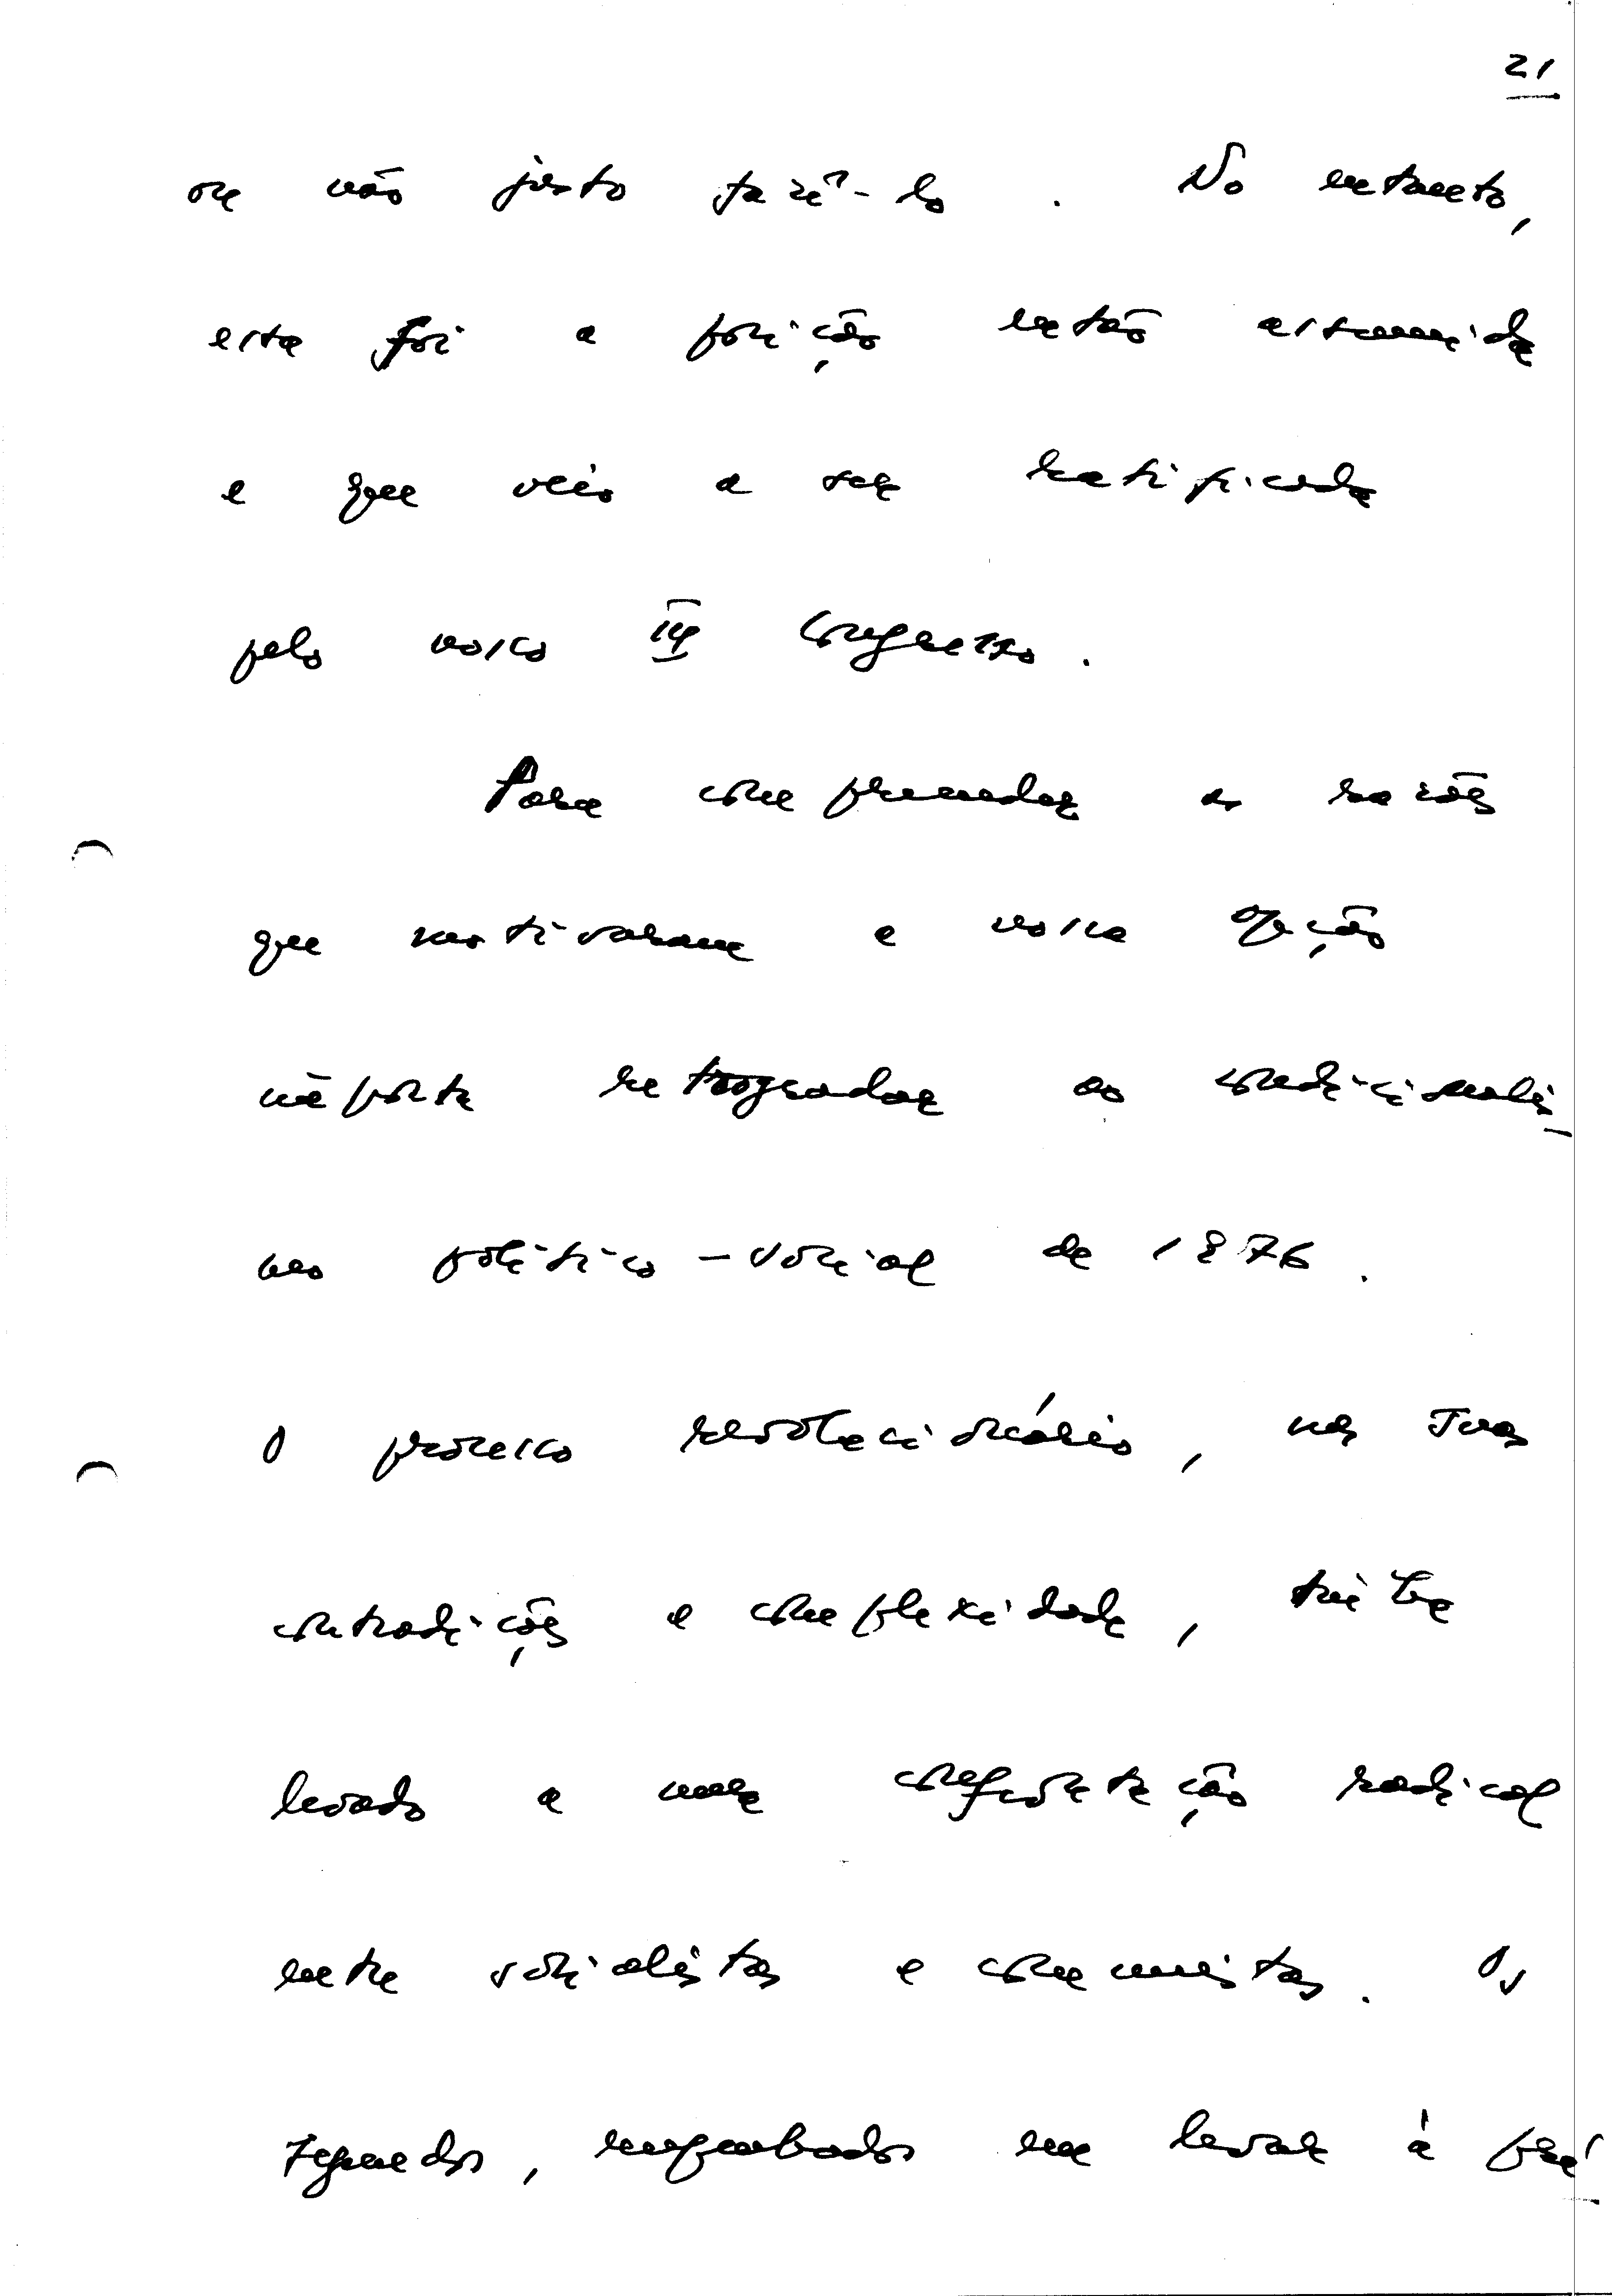 21
ou não justo fazê-lo. No entanto,
esta foi a posição então assumida
e que veio a ser ratificada
pelo nosso III Congresso.
Para compreender as razões
que motivaram a nossa opção
retrogradar ao condicionalis-
mo político-social de 1976.
O processo revolucionário, nas suas
contradições e complexidade, tinha
levado a uma confrontação radical
entre socialistas e comunistas. Os
segundos, empenhados em levar à prá-